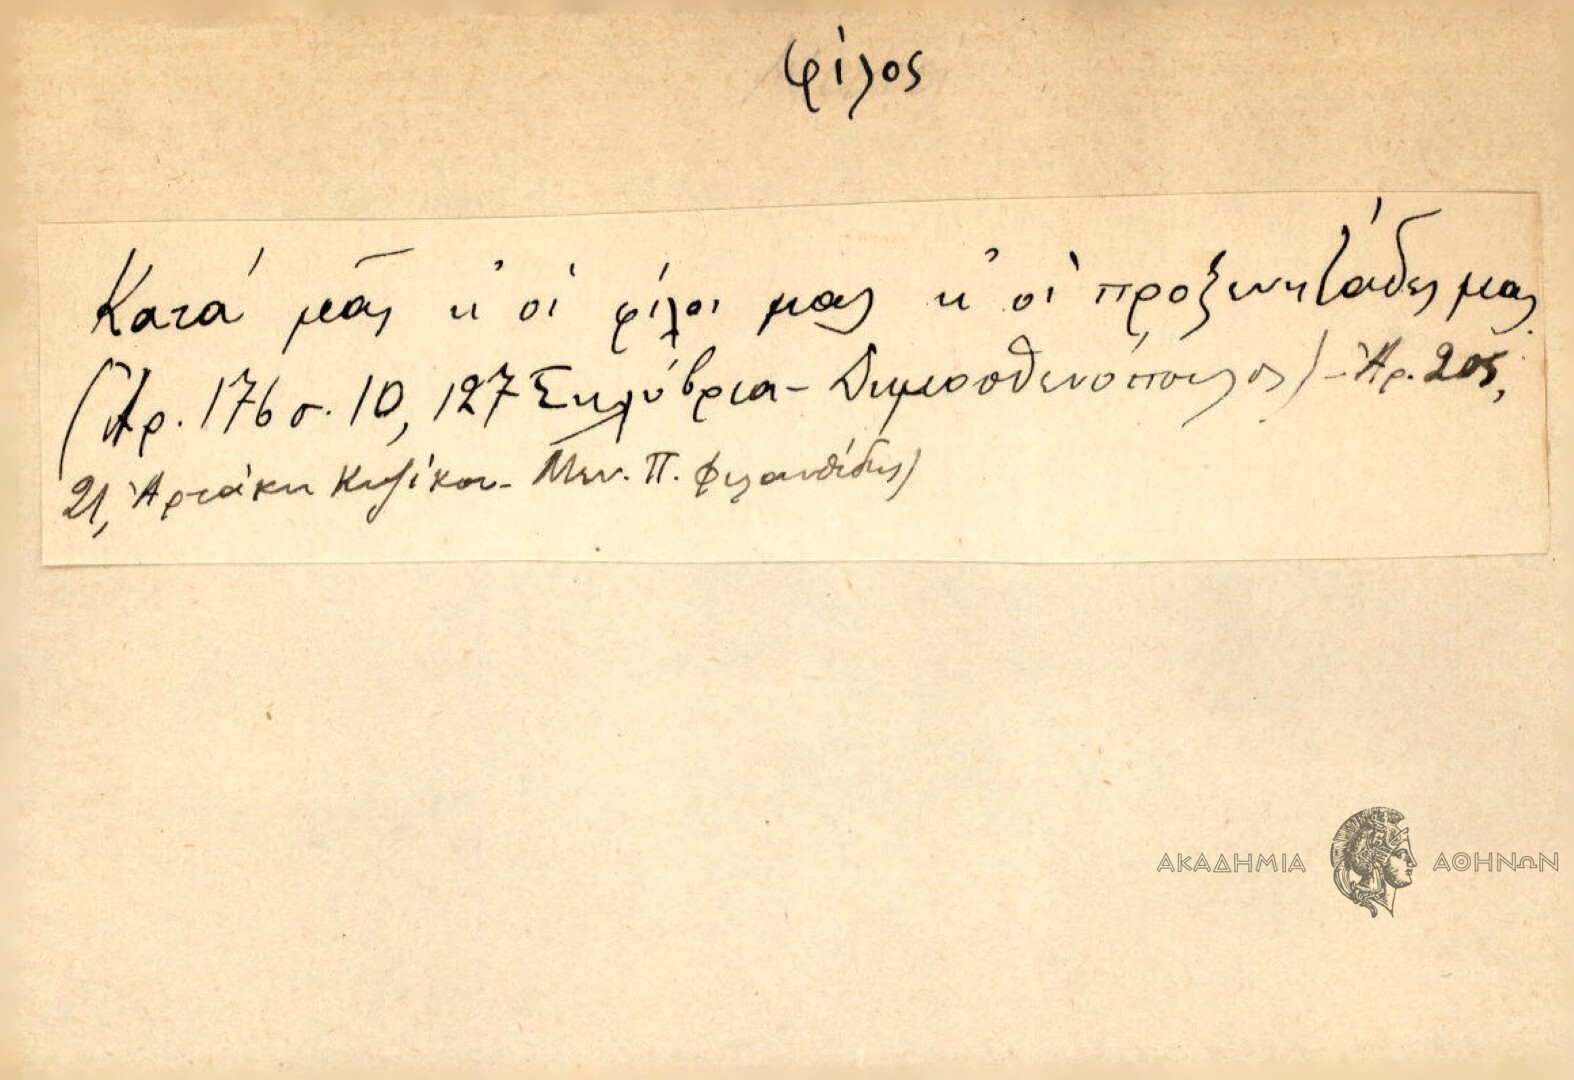 φίλος
Κατά μᾶς κ' οἱ φίλοι μας κ' οἱ προξενητζάδες μας
(Ἀρ. 176 σ. 10, 127 Σηλύβρια - Δημοσθενόπουλος) - Ἀρ. 205,
21, Ἀρτάκη Κυζίκου - Μεν. Π. Φιλανθίδης)
ΑΚΑΔΗΜΙΑ ΑΘΗΝΩΝ